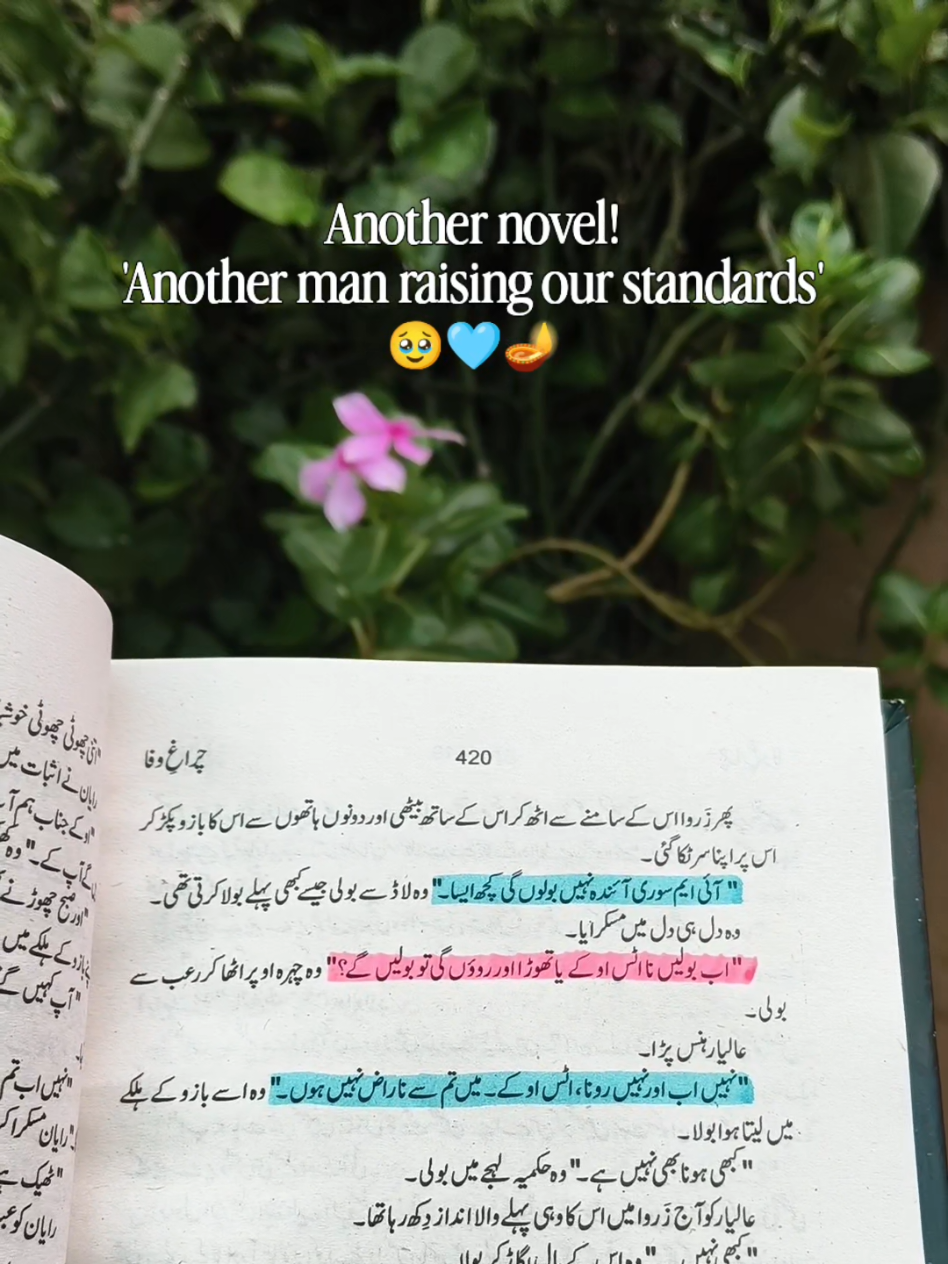 Another novel!
'Another man raising our standards'
🥹🩵🪔
420
چراغِ وفا
پھر زَروا اس کے سامنے سے اٹھ کر اس کے ساتھ بیٹھی اور دونوں ہاتھوں سے اس کا بازو پکڑ کر
اس پر اپنا سر ٹکا گئی۔
"آئی ایم سوری آئندہ نہیں بولوں گی کچھ ایسا۔" وہ لاڈ سے بولی جیسے کبھی پہلے بولا کرتی تھی۔
وہ دل ہی دل میں مسکرایا۔
"اب بولیں نا اٹس اوکے یا تھوڑا اور روؤں گی تو بولیں گے؟" وہ چہرہ اوپر اٹھا کر رعب سے
بولی۔
عالیار ہنس پڑا۔
"نہیں اب اور نہیں رونا، اٹس اوکے۔ میں تم سے ناراض نہیں ہوں۔" وہ اسے بازو کے ہلکے
میں لیتا ہوا بولا۔
"کبھی ہونا بھی نہیں ہے۔" وہ حکمیہ لہجے میں بولی۔
عالیار کو آج زَروا میں اس کا وہی پہلے والا انداز دِکھ رہا تھا۔
"کبھی نہیں
چھوٹی چھوٹی
رایان نے اثبات میں
"اوکے جناب ہم
آپ کے۔" وہ
صبح چھوڑنے
کے ہلکے میں
"آپ کہیں گے
"نہیں اب تم
رایان مسکرا
"ٹھیک ہے
رایان کو